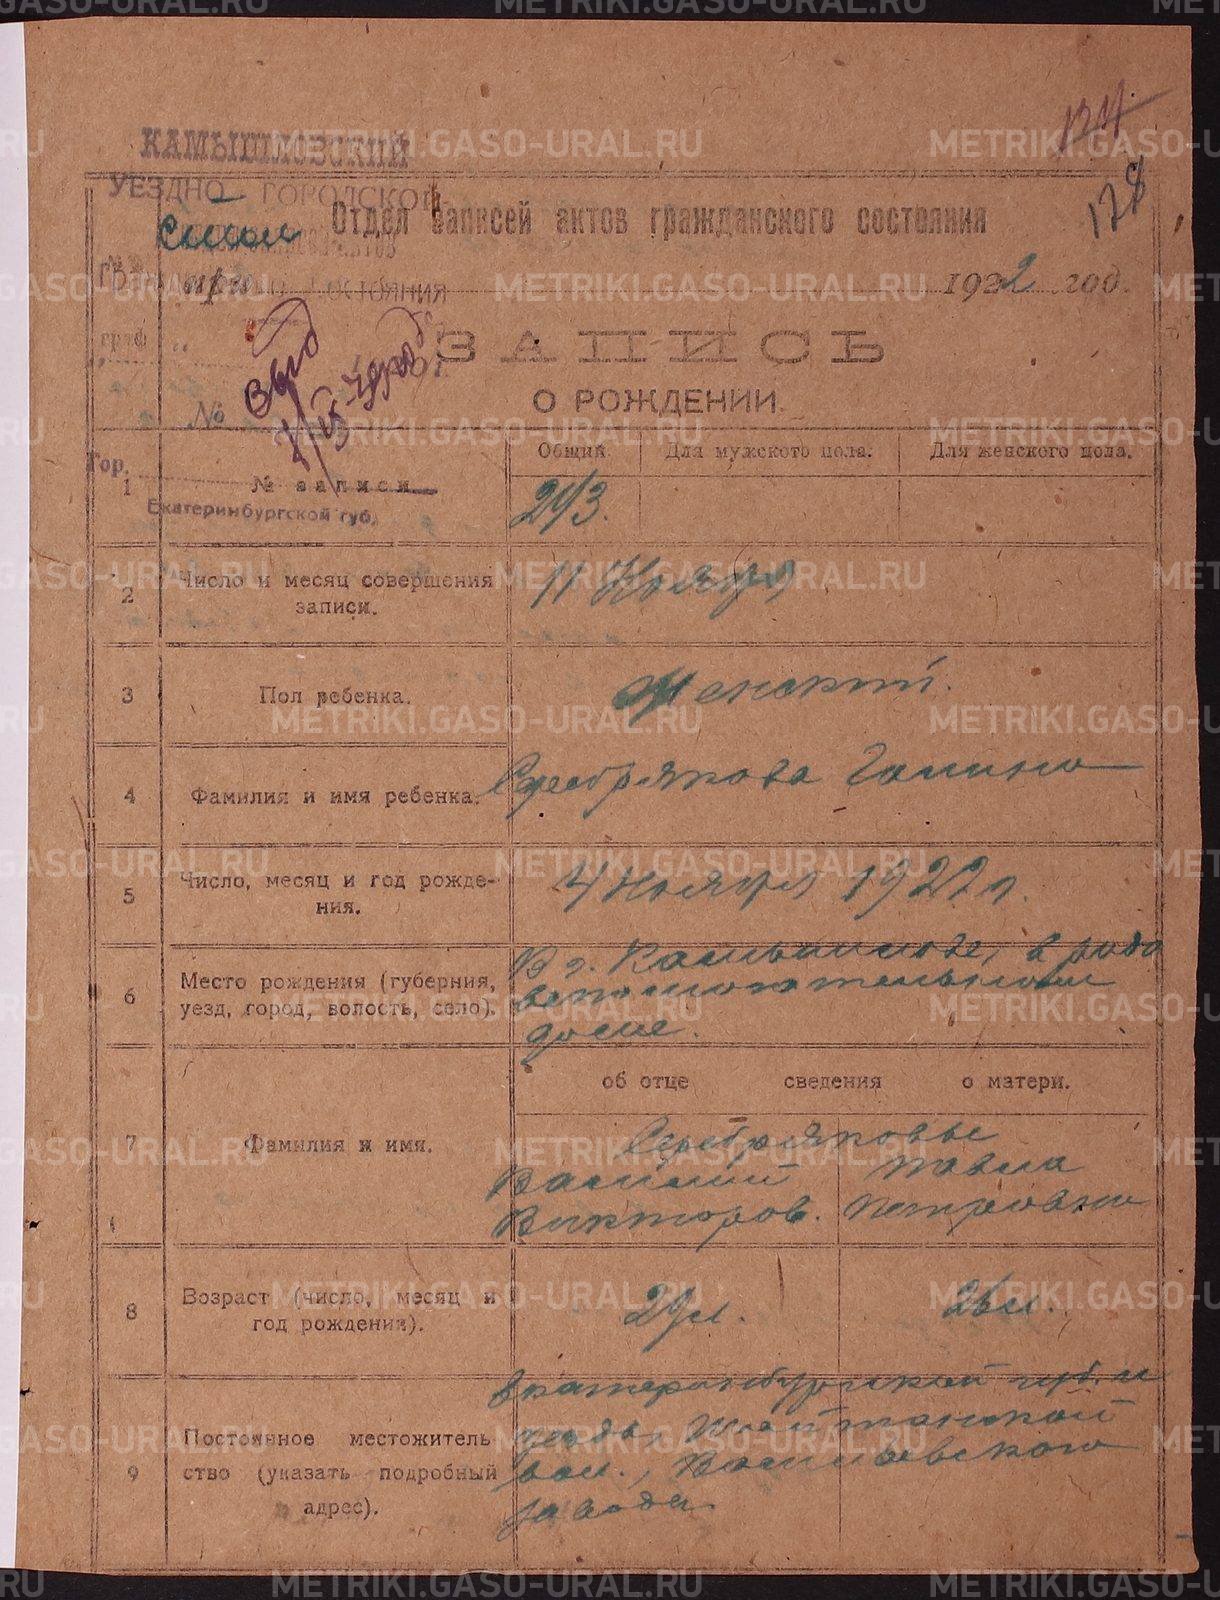 124.
128
КАМЫШЛОВСКИЙ
УЕЗДНО-ГОРОДСКОЙ
Отдел записей актов гражданского состояния
при 1922 год.
ЗАПИСЬ
О РОЖДЕНИИ.
№
Общий. Для мужского пола. Для женского пола.
Гор.
1 № записи 243.
Екатеринбургской губ.
2 Число и месяц совершения записи. 11 Ноября
3 Пол ребенка. Женский.
4 Фамилия и имя ребенка. Серебрякова Галина
5 Число, месяц и год рожде-
ния. 4 Ноября 1922 г.
6 Место рождения (губерния,
уезд, город, волость, село). В г. Камышлове, в родо
вспомогательном
доме.
об отце сведения о матери.
7 Фамилия и имя. Серебряковы
Василий Павла
Викторов. Петровна
8 Возраст (число, месяц и
год рождения). 29 л. 26 л.
9 Постоянное местожитель
ство (указать подробный
адрес). Екатеринбургской губ. и
уезда, Шайтанской
вол., Васильевского
завода.
METRIKI.GASO-URAL.RU